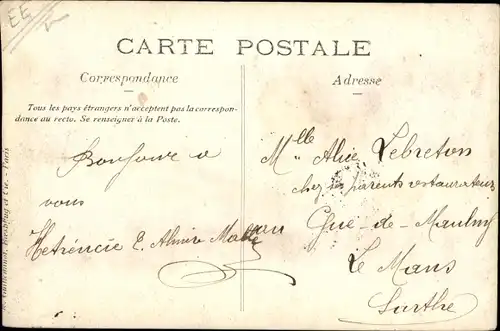 EE
CARTE POSTALE
Correspondance
Adresse
Tous les pays étrangers n'acceptent pas la correspon-
dance au recto. Se renseigner à la Poste.
Bonjour a
vous
E. Almire
Mlle Alice Lebreton
chez ses parents restaurateurs
Gué-de-Maulny
Le Mans
Sarthe
et Cie. - Paris